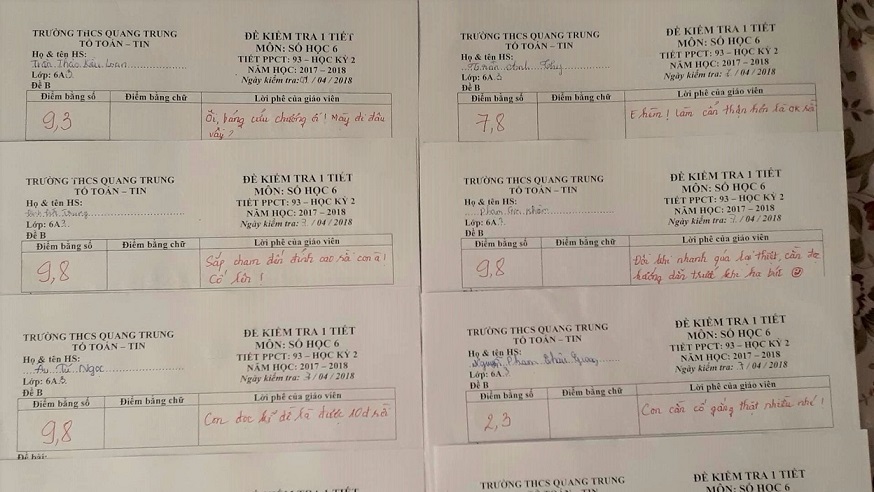 TRƯỜNG THCS QUANG TRUNG
TỔ TOÁN – TIN
Họ & tên HS:
Lớp: 6A3
Đề B
ĐỀ KIỂM TRA 1 TIẾT
MÔN: SỐ HỌC 6
TIẾT PPCT: 93 – HỌC KỲ 2
NĂM HỌC: 2017 – 2018
Ngày kiểm tra: / 04 / 2018
Điểm bằng số Điểm bằng chữ Lời phê của giáo viên
9,3
Ôi, bảng cửu chương ơi! Mày đi đâu
vậy?
TRƯỜNG THCS QUANG TRUNG
TỔ TOÁN – TIN
Họ & tên HS:
Lớp: 6A3
Đề B
ĐỀ KIỂM TRA 1 TIẾT
MÔN: SỐ HỌC 6
TIẾT PPCT: 93 – HỌC KỲ 2
NĂM HỌC: 2017 – 2018
Ngày kiểm tra: / 04 / 2018
Điểm bằng số Điểm bằng chữ Lời phê của giáo viên
7,8
E hèm! Làm cẩn thận hơn là OK rồi
TRƯỜNG THCS QUANG TRUNG
TỔ TOÁN – TIN
Họ & tên HS:
Trung
Lớp: 6A
Đề B
ĐỀ KIỂM TRA 1 TIẾT
MÔN: SỐ HỌC 6
TIẾT PPCT: 93 – HỌC KỲ 2
NĂM HỌC: 2017 – 2018
Ngày kiểm tra: / 04 / 2018
Điểm bằng số Điểm bằng chữ Lời phê của giáo viên
9,8
Sắp chạm đến đỉnh cao rồi con ạ!
Cố lên!
TRƯỜNG THCS QUANG TRUNG
TỔ TOÁN – TIN
Họ & tên HS:
Phạm
Lớp: 6A
Đề B
ĐỀ KIỂM TRA 1 TIẾT
MÔN: SỐ HỌC 6
TIẾT PPCT: 93 – HỌC KỲ 2
NĂM HỌC: 2017 – 2018
Ngày kiểm tra: / 04 / 2018
Điểm bằng số Điểm bằng chữ Lời phê của giáo viên
9,8
Đôi khi nhanh quá lại thiệt, cần
hướng dẫn trước khi hạ bút
TRƯỜNG THCS QUANG TRUNG
TỔ TOÁN – TIN
Họ & tên HS:
Tú Ngọc
Lớp: 6A3
Đề B
ĐỀ KIỂM TRA 1 TIẾT
MÔN: SỐ HỌC 6
TIẾT PPCT: 93 – HỌC KỲ 2
NĂM HỌC: 2017 – 2018
Ngày kiểm tra: / 04 / 2018
Điểm bằng số Điểm bằng chữ Lời phê của giáo viên
9,8
Con đọc kỹ đề là được 10đ rồi
Đề bài:
TRƯỜNG THCS QUANG TRUNG
TỔ TOÁN – TIN
Họ & tên HS:
Nguyễn Phạm
Lớp: 6A
Đề B
ĐỀ KIỂM TRA 1 TIẾT
MÔN: SỐ HỌC 6
TIẾT PPCT: 93 – HỌC KỲ 2
NĂM HỌC: 2017 – 2018
Ngày kiểm tra: / 04 / 2018
Điểm bằng số Điểm bằng chữ Lời phê của giáo viên
2,3
Con cần cố gắng thật nhiều nhé!
TRƯỜNG THCS QUANG TRUNG
ĐỀ KIỂM TRA 1 TIẾT
MÔN: SỐ HỌC 6